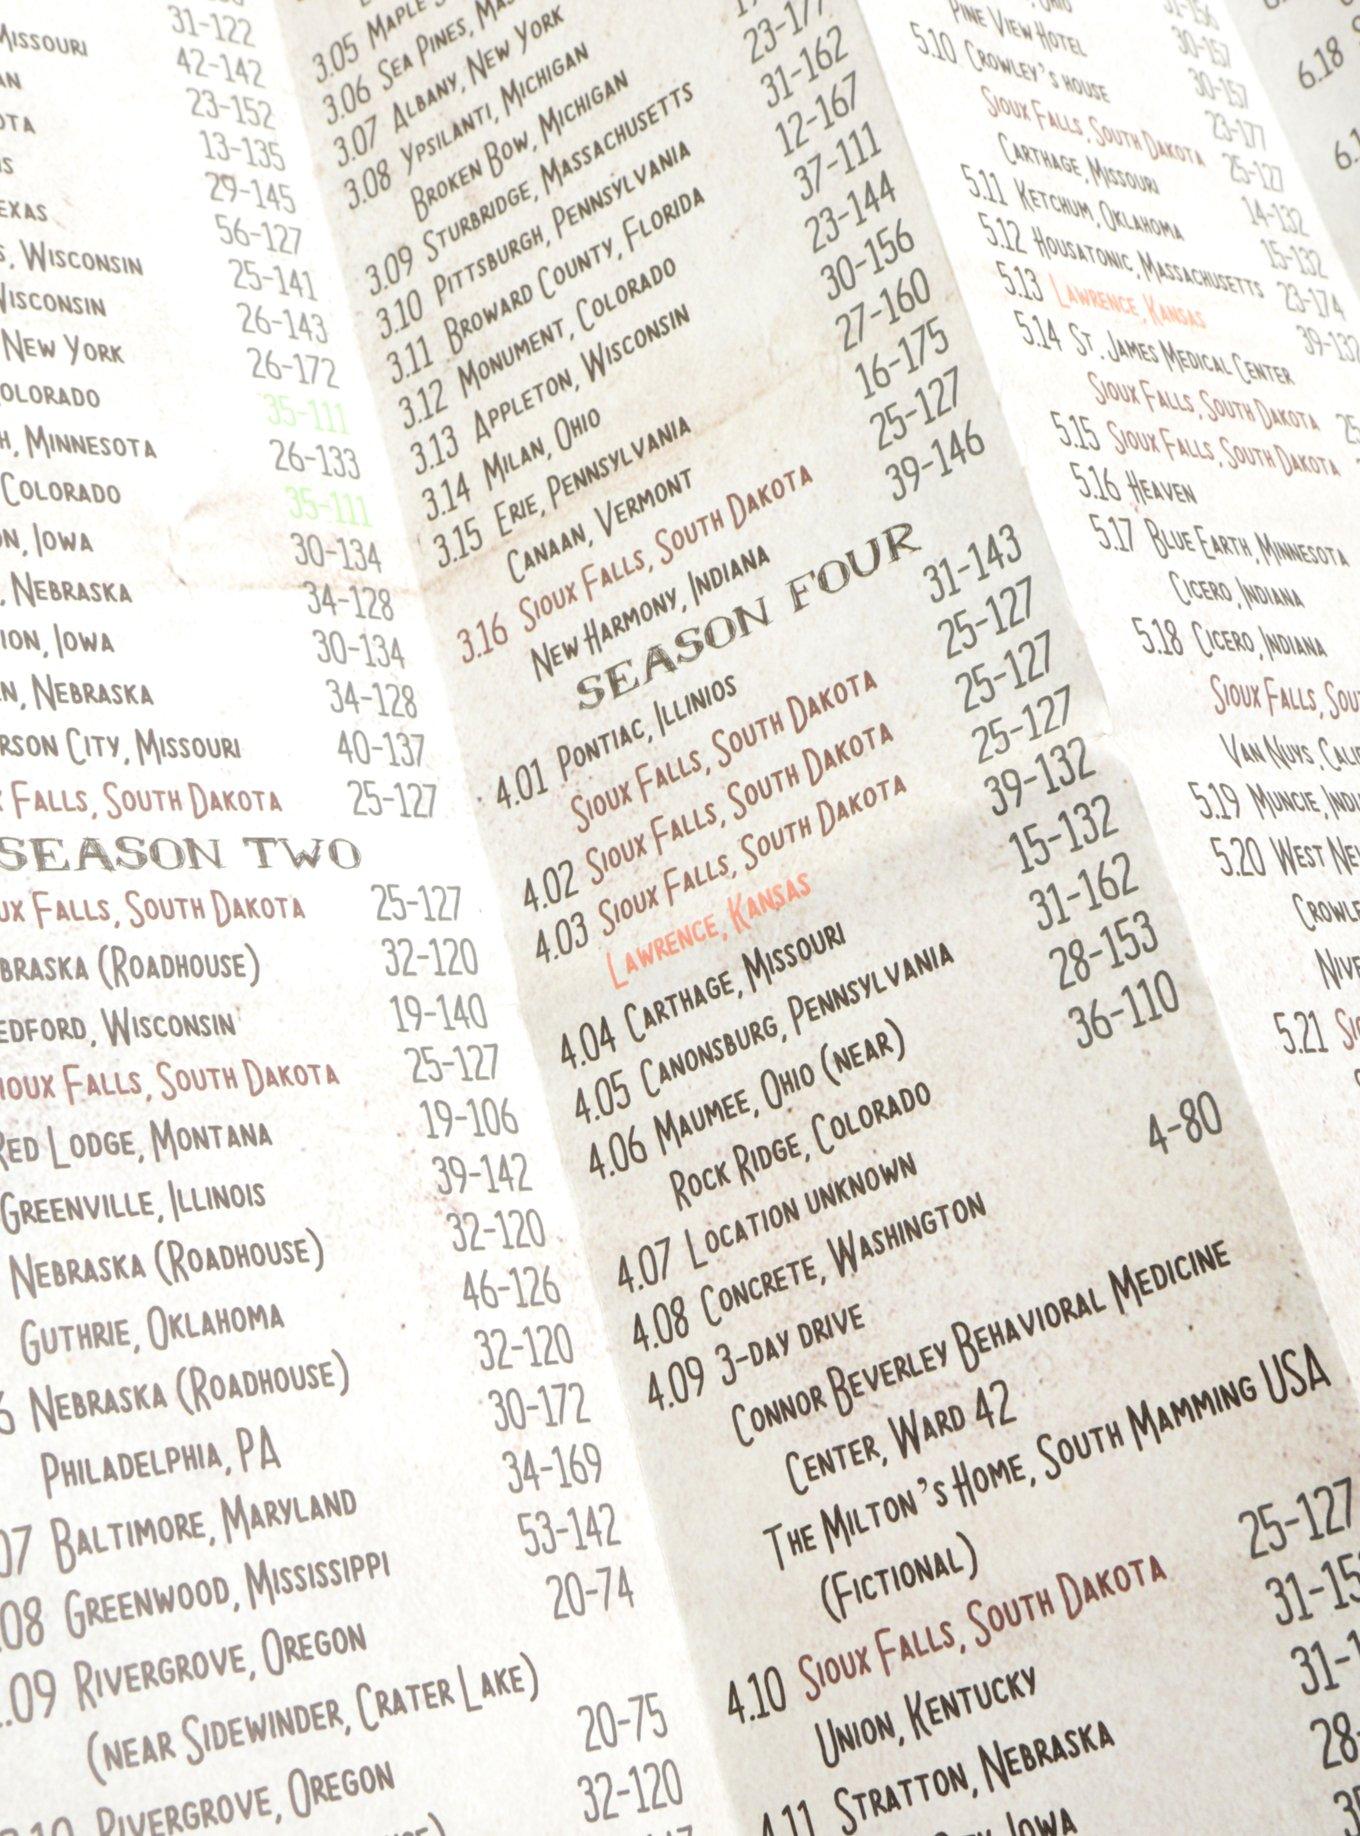 31-122
Missouri 42-142
23-152
13-135
29-145
56-127
, Wisconsin 25-141
Wisconsin 26-143
New York 26-172
35-111
, Minnesota 26-133
Colorado 35-111
, Iowa 30-134
, Nebraska 34-128
, Iowa 30-134
, Nebraska 34-128
City, Missouri 40-137
Falls, South Dakota 25-127
Season Two
Falls, South Dakota 25-127
(Roadhouse) 32-120
, Wisconsin 19-140
Falls, South Dakota 25-127
Red Lodge, Montana 19-106
Greenville, Illinois 39-142
Nebraska (Roadhouse) 32-120
Guthrie, Oklahoma 46-126
Nebraska (Roadhouse) 32-120
Philadelphia, PA 30-172
07 Baltimore, Maryland 34-169
.08 Greenwood, Mississippi 53-142
.09 Rivergrove, Oregon 20-74
(near Sidewinder, Crater Lake)
Rivergrove, Oregon 20-75
32-120
3.05 Maple
3.06 Sea Pines,
3.07 Albany, New York
3.08 Ypsilanti, Michigan
Broken Bow, Michigan
3.09 Sturbridge, Massachusetts
3.10 Pittsburgh, Pennsylvania
3.11 Broward County, Florida
3.12 Monument, Colorado
3.13 Appleton, Wisconsin
3.14 Milan, Ohio
3.15 Erie, Pennsylvania
Canaan, Vermont
3.16 Sioux Falls, South Dakota
New Harmony, Indiana
23-177
31-162
12-167
37-111
23-144
30-156
27-160
16-175
25-127
39-146
Season Four
4.01 Pontiac, Illinios 31-143
Sioux Falls, South Dakota 25-127
4.02 Sioux Falls, South Dakota 25-127
4.03 Sioux Falls, South Dakota 25-127
Lawrence, Kansas 39-132
4.04 Carthage, Missouri 15-132
4.05 Canonsburg, Pennsylvania 31-162
4.06 Maumee, Ohio (near) 28-153
Rock Ridge, Colorado 36-110
4.07 Location unknown
4.08 Concrete, Washington 4-80
4.09 3-day drive
Connor Beverley Behavioral Medicine
Center, Ward 42
The Milton's Home, South Mamming USA
(Fictional)
4.10 Sioux Falls, South Dakota 25-127
Union, Kentucky
4.11 Stratton, Nebraska
, Iowa
Pine View Hotel
5.10 Crowley's house
Sioux Falls, South Dakota
Carthage, Missouri
5.11 Ketchum, Oklahoma
5.12 Housatonic, Massachusetts
5.13 Lawrence, Kansas
5.14 St. James Medical Center
Sioux Falls, South Dakota
5.15 Sioux Falls, South Dakota
5.16 Heaven
5.17 Blue Earth, Minnesota
Cicero, Indiana
5.18 Cicero, Indiana
Sioux Falls,
Van Nuys,
5.19 Muncie,
5.20 West
5.21
31-156
30-157
30-157
23-177
25-127
14-132
15-132
23-174
39-132
6.18